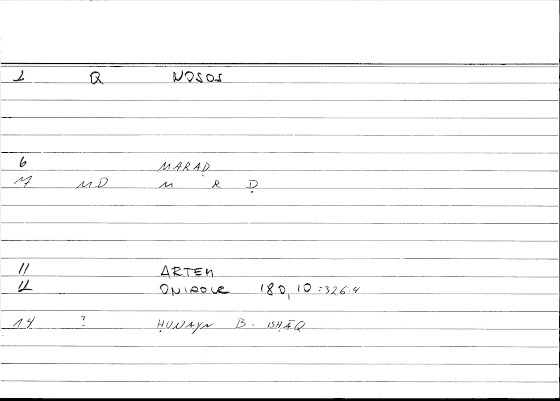 1 Q NOSOS
6 MARAḌ
7 MD M R Ḍ
11 ARTEM
12 ONIROCR 180,10 = 326.4
14 ? ḤUNAYN B. ISḤĀQ